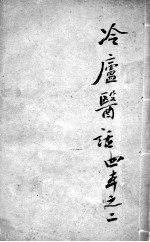 冷廬醫話四本之二